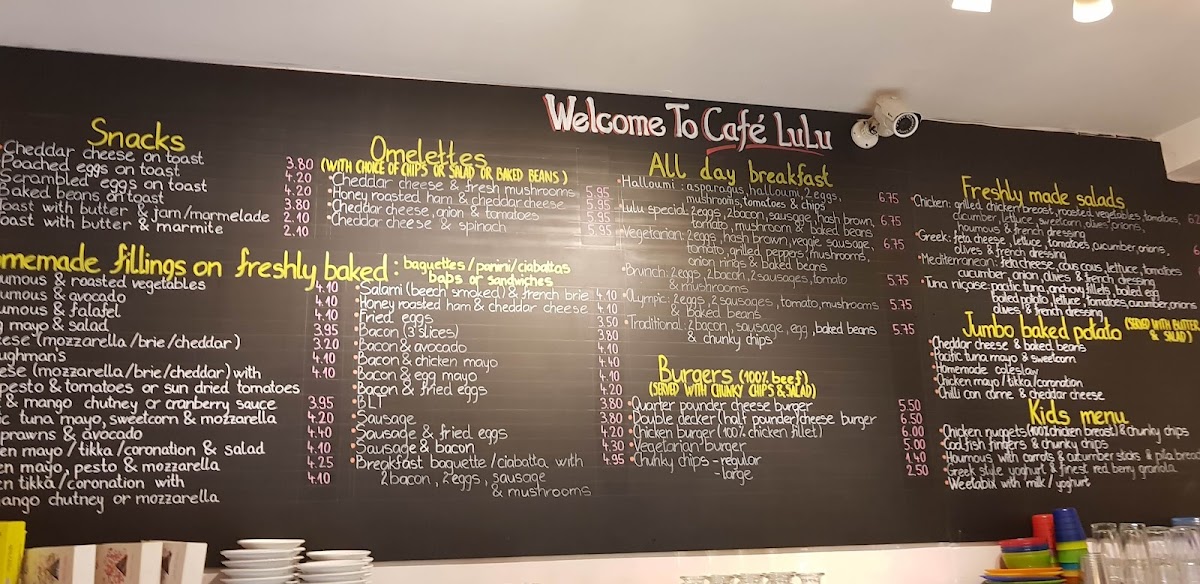 Welcome To Café LuLu
Snacks
Cheddar cheese on toast 3.80
Poached eggs on toast 4.20
Scrambled eggs on toast 4.20
Baked beans on toast 3.80
Toast with butter & jam/marmelade 2.10
Toast with butter & marmite 2.10
Omelettes
(WITH CHOICE OF CHIPS OR SALAD OR BAKED BEANS)
•Cheddar cheese & fresh mushrooms 5.95
•Honey roasted ham & cheddar cheese 5.95
•Cheddar cheese, onion & tomatoes 5.95
•Cheddar cheese & spinach 5.95
fillings on freshly baked: baguettes/panini/ciabattas
baps or sandwiches
& roasted vegetables 4.10
& avocado 4.10
& falafel 4.10
mayo & salad 3.95
(mozzarella/brie/cheddar) 3.20
4.10
(mozzarella/brie/cheddar) with 4.10
pesto & tomatoes or sun dried tomatoes
& mango chutney or cranberry sauce 3.95
tuna mayo, sweetcorn & mozzarella 4.20
prawns & avocado 4.40
mayo / tikka /coronation & salad 4.10
mayo, pesto & mozzarella 4.25
tikka/coronation with 4.10
chutney or mozzarella
•Salami (beech smoked) & french brie 4.10
•Honey roasted ham & cheddar cheese 4.10
•Fried eggs 3.50
•Bacon (3 slices) 3.80
•Bacon & avocado 4.10
•Bacon & chicken mayo 4.40
•Bacon & egg mayo 4.10
•Bacon & fried eggs 4.20
•BLT 3.80
•Sausage 3.80
•Sausage & fried eggs 4.20
•Sausage & bacon 4.30
•Breakfast baguette/ciabatta with 4.95
2 bacon, 2 eggs, sausage
& mushrooms
All day breakfast
•Halloumi: asparagus, halloumi, 2 eggs, 6.75
mushrooms, tomatoes & chips
•Lulu special: 2 eggs, 2 bacon, sausage, hash brown, 6.75
tomato, mushroom & baked beans
•Vegetarian: 2 eggs, hash brown, veggie sausage, 6.75
tomato, grilled peppers, mushrooms,
onion rings & baked beans
•Brunch: 2 eggs, 2 bacon, 2 sausages, tomato 5.75
& mushrooms
•Olympic: 2 eggs, 2 sausages, tomato, mushrooms 5.75
& baked beans
•Traditional: 2 bacon, sausage, egg, baked beans 5.75
& chunky chips
Burgers (100% beef)
(SERVED WITH CHUNKY CHIPS & SALAD)
•Quarter pounder cheese burger 5.50
•Double decker (half pounder) cheese burger 6.50
•Chicken burger (100% chicken fillet) 6.00
•Vegetarian burger 5.00
•Chunky chips - regular 1.40
- large 2.50
Freshly made salads
•Chicken: grilled chicken breast, roasted vegetables, tomatoes,
cucumber, lettuce, sweetcorn, olives, onions,
houmous & french dressing
•Greek: feta cheese, lettuce, tomatoes, cucumber, onions,
olives & french dressing
•Mediterranean: feta cheese, cous cous, lettuce, tomatoes
cucumber, onion, olives & french dressing
•Tuna niçoise: pacific tuna, anchovy fillets, boiled egg
baked potato, lettuce, tomatoes, cucumber, onions
olives & french dressing
Jumbo baked potato (SERVED WITH BUTTER
& SALAD)
•Cheddar cheese & baked beans
•Pacific tuna mayo & sweetcorn
•Homemade coleslaw
•Chicken mayo/tikka/coronation
•Chilli con carne & cheddar cheese
Kids menu
•Chicken nuggets (100% chicken breast) & chunky chips
•Cod fish fingers & chunky chips
•Houmous with carrots & cucumber sticks & pita bread
•Greek style yoghurt & finest red berry granola
•Weetabix with milk / yoghurt